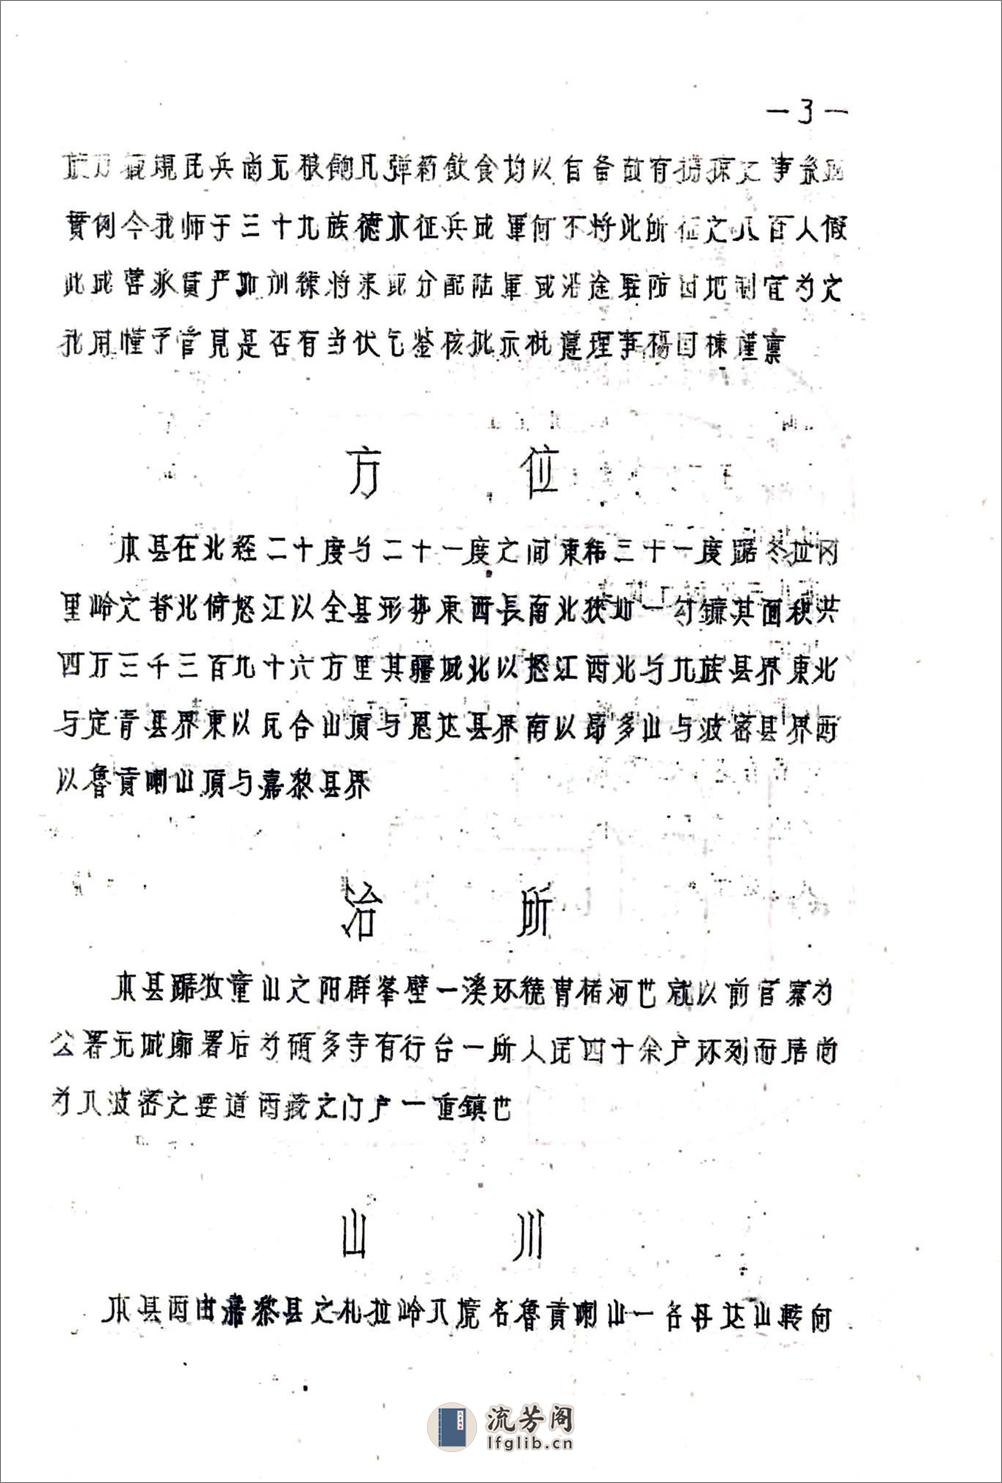 —3—
现民兵尚无粮饷凡弹药飲食均以自备故有掳掠之事系
實例今我师于三十九族德木征兵成軍何不将此所征之八百人假
此成营派員严加訓練将来或分配陆軍或沿途駐防因地制宜为之
北用惟予管見是否有当伏乞鉴核批示祗遵理事楊国棟謹禀
方位
本县在北経二十度与二十一度之间東緯三十一度踞冬拉冈
里岭之脊北倚怒江以全县形势東西長南北狭如一勾鐮其面积共
四万三千三百九十六方里其疆域北以怒江西北与九族县界東北
与定青县界東以瓦合山頂与恩达县界南以昂多山与波密县界西
以魯貢喇山頂与嘉黎县界
治所
本县踞牧童山之阳群峯壁一溪环繞胃楮河也就以前官寨为
公署无城廓署后为碩多寺有行台一所人民四十余户环列而居尚
为入波密之要道两藏之门户一重鎮也
山川
本县西由嘉黎县之札拉岭入境名魯貢喇山一名丹达山转向
流芳阁
lfglib.cn